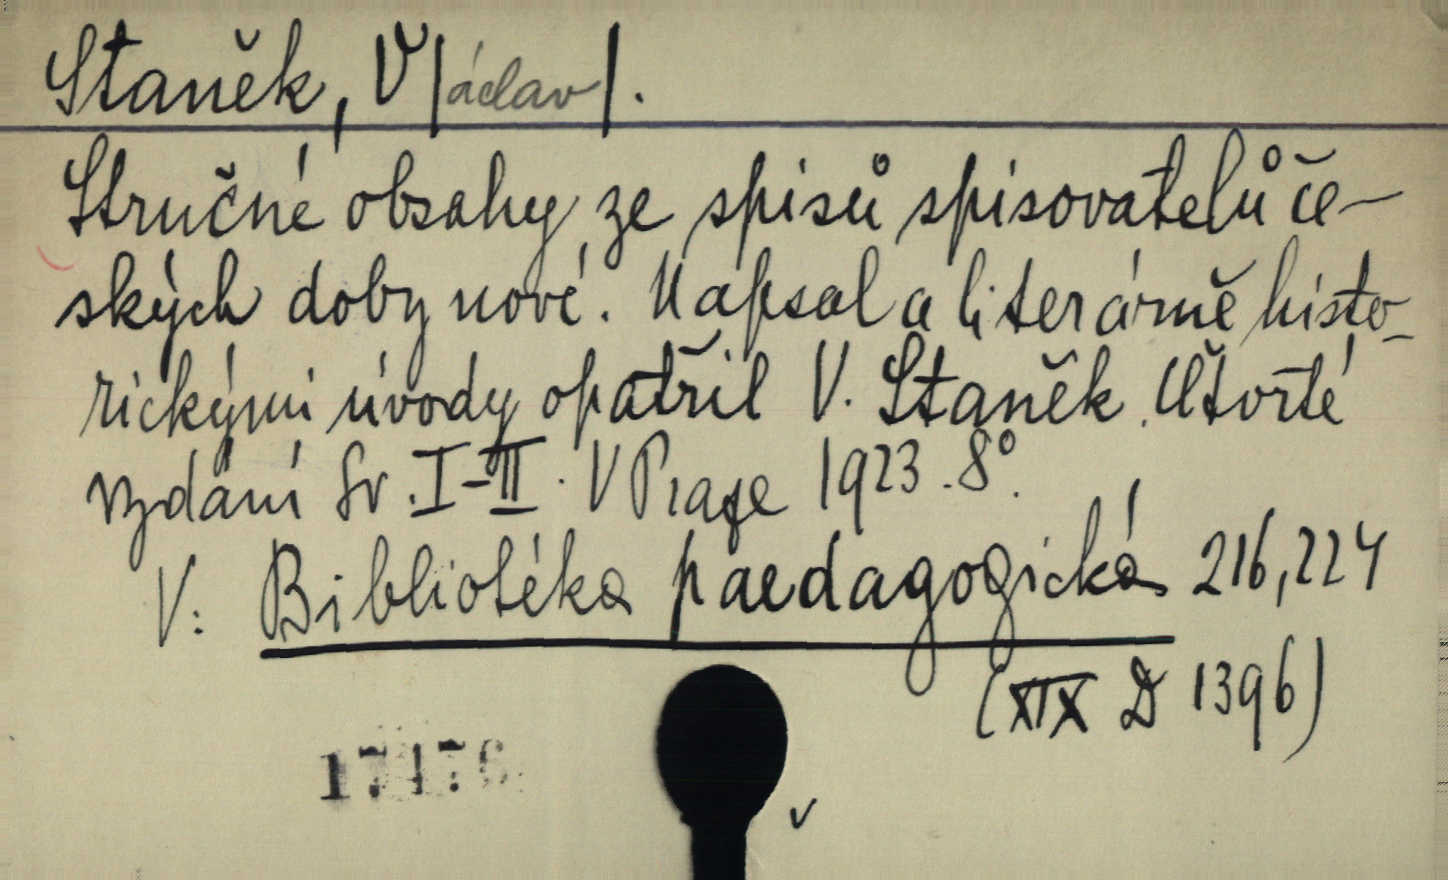 Staněk, V/áclav/.
Stručné obsahy ze spisů spisovatelů če-
ských doby nové. Napsal a literárně histo-
rickými úvody opatřil V. Staněk. Čtvrté
vydání Sv. I-II. V Praze 1923. 8°.
V: Bibliotéka paedagogická 216,224
(XIX D 1396)
17476